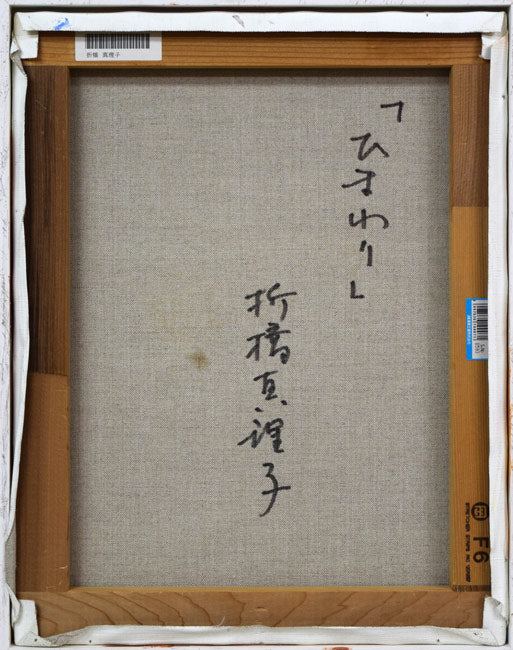 折橋 真理子
「ひまわり」
折橋真理子
F6